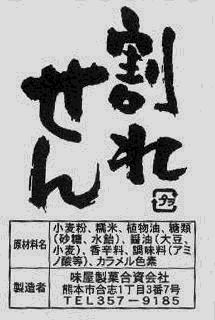 割れ
せん
プラ
原材料名
小麦粉、糯米、植物油、糖類
(砂糖、水飴)、醤油(大豆、
小麦)、香辛料、調味料(アミ
ノ酸等)、カラメル色素
製造者
味屋製菓合資会社
熊本市合志1丁目3番7号
TEL357-9185